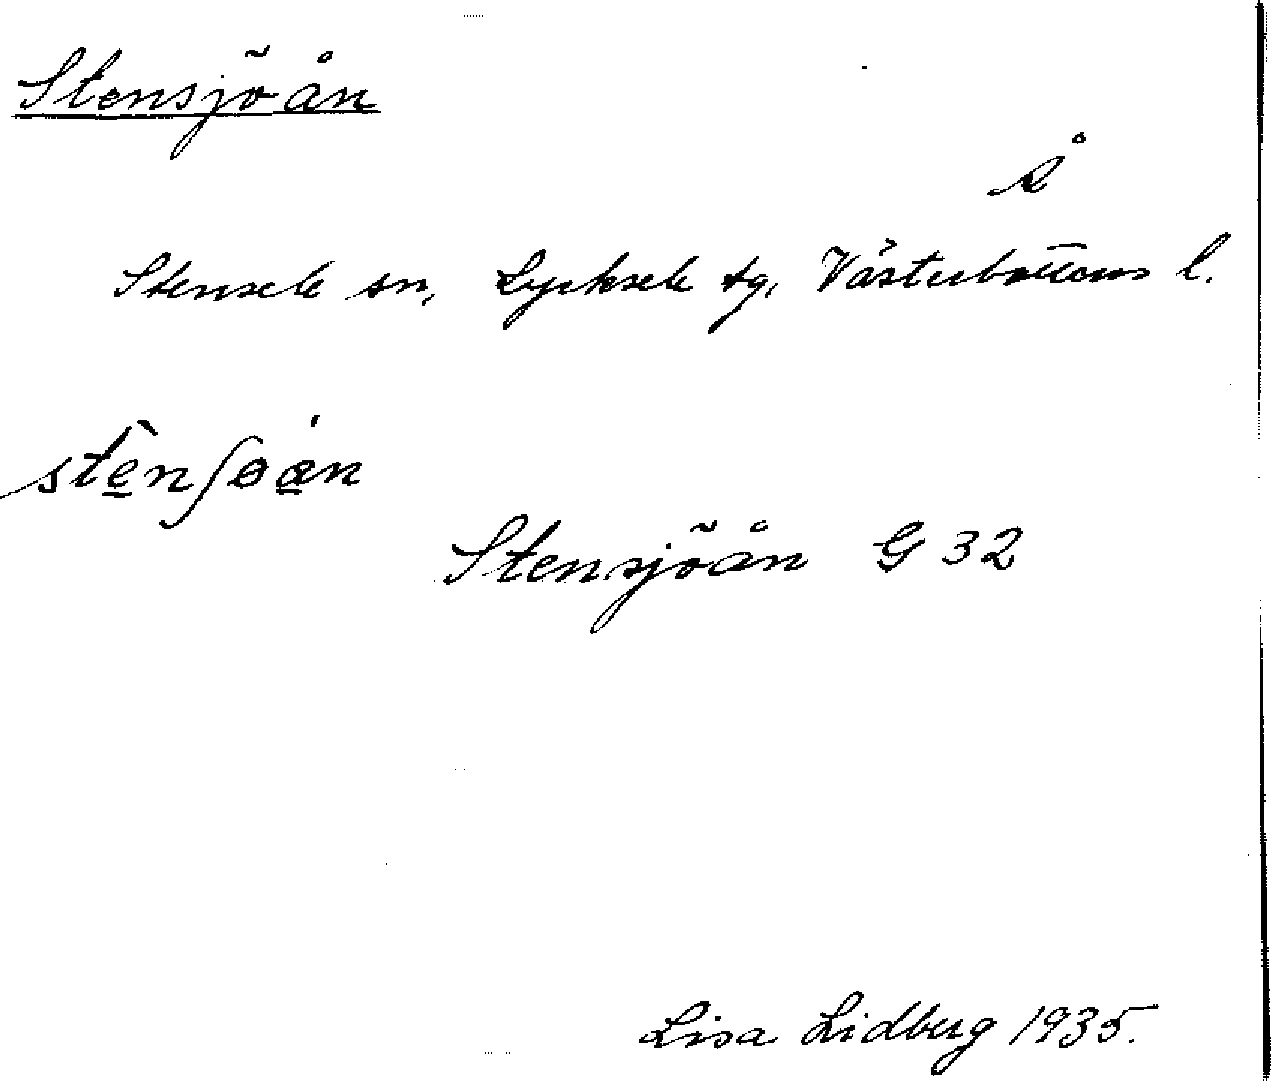 Stensjöån
Å
Stensele sn, Lycksele tg, Västerbottens l.
stè̱nʃɵa̱̍n
Stensjöån G 32
Lisa Lidberg 1935.